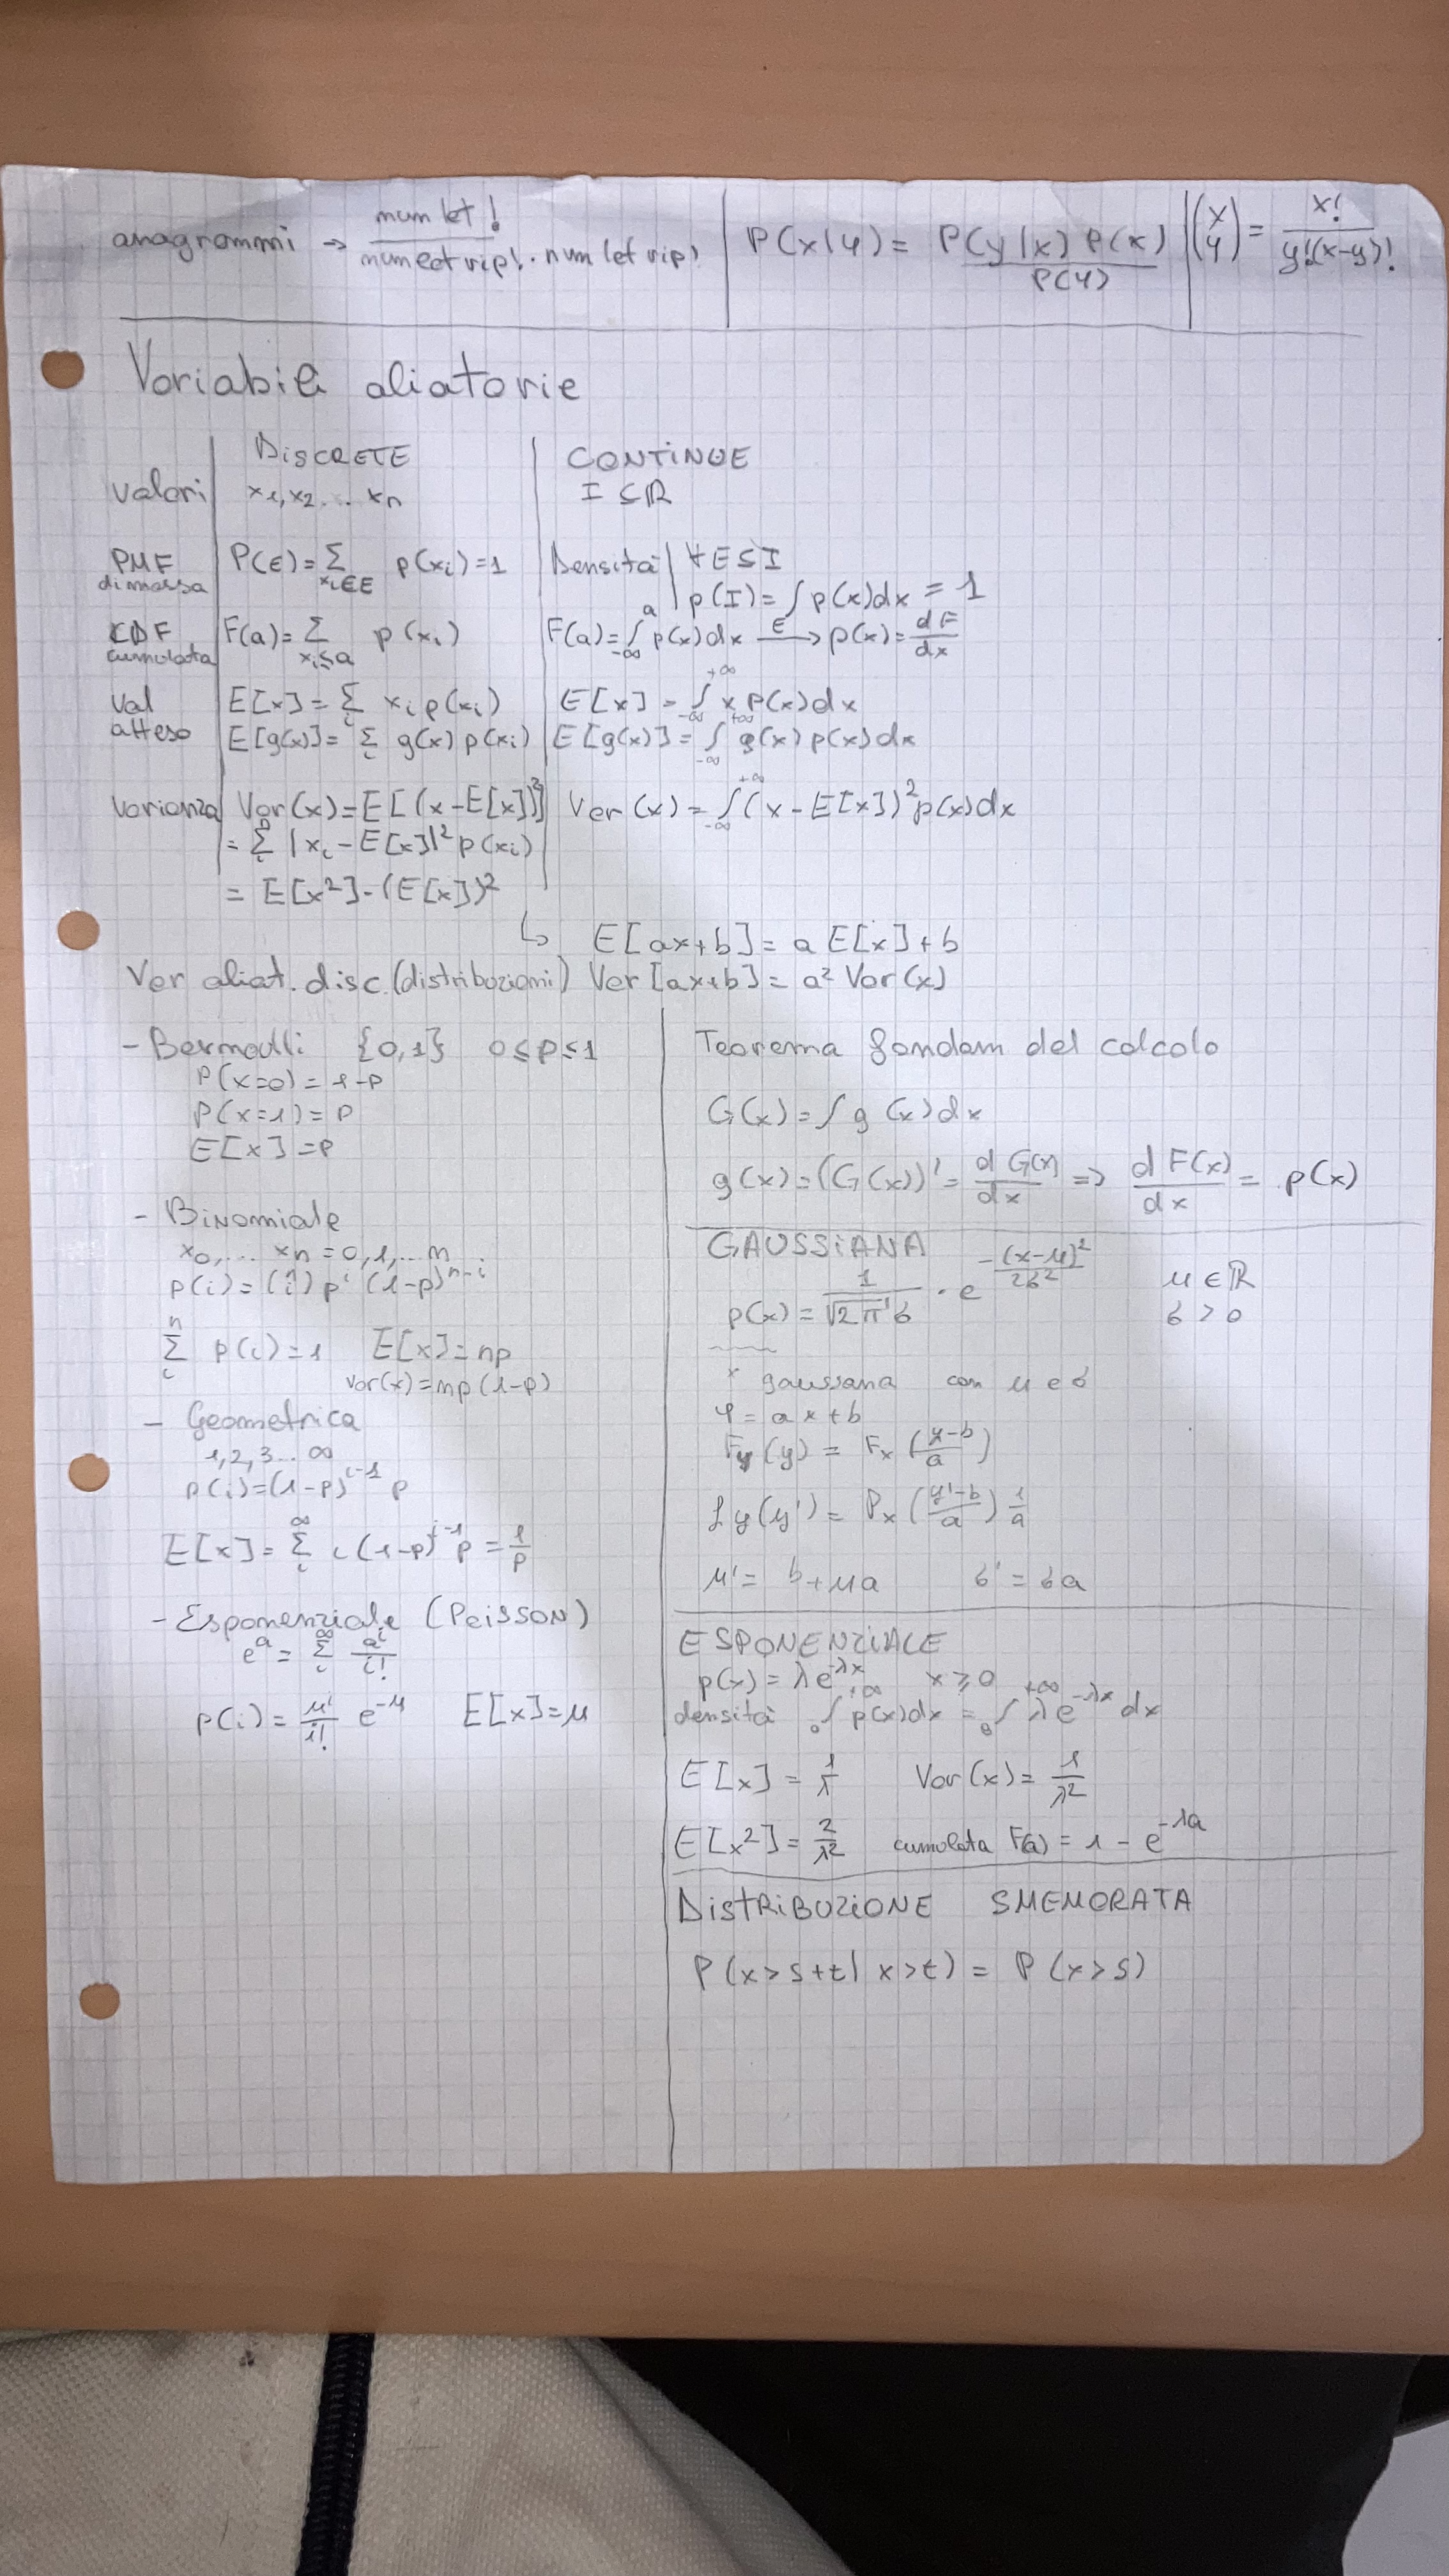 anagrammi → num let! / num let rip! · num let rip! | P(x|y) = P(y|x) P(x) / P(y) | (x y) = x! / y!(x-y)!
Variabili aliatorie
DISCRETE | CONTINUE
valori | x1, x2 ... xn | I ⊆ ℝ
PMF di massa | P(E) = Σ xi∈E p(xi) = 1 | Densità | ∀ E ⊆ I
p(I) = ∫ p(x)dx = 1
CDF cumulata | F(a) = Σ xi≤a p(xi) | F(a) = ∫_-∞^a p(x)dx →E p(x) = dF/dx
val atteso | E[x] = Σi xi p(xi) | E[x] = ∫_-∞^+∞ x p(x)dx
E[g(x)] = Σi g(x) p(xi) | E[g(x)] = ∫_-∞^+∞ g(x) p(x)dx
varianza | Var(x) = E[(x-E[x])²] | Var(x) = ∫_-∞^+∞ (x-E[x])² p(x)dx
= Σi |xi-E[x]|² p(xi)
= E[x²]-(E[x])²
↳ E[ax+b] = a E[x]+b
Var aliat. disc. (distribuzioni) Var[ax+b] = a² Var(x)
- Bernoulli {0,1} 0≤p≤1
P(x=0) = 1-p
P(x=1) = p
E[x] = p
- Binomiale
x0, ... xn = 0, 1, ... n
p(i) = (i) p^i (1-p)^n-i
Σi^n p(i) = 1 E[x] = np
var(x) = np(1-p)
- Geometrica
1, 2, 3 ... ∞
p(i) = (1-p)^i-1 p
E[x] = Σi^∞ i(1-p)^i-1 p = 1/p
- Esponenziale (Poisson)
e^a = Σi^∞ a^i / i!
p(i) = μ^i / i! e^-μ E[x] = μ
Teorema fondam del calcolo
G(x) = ∫ g(x)dx
g(x) = (G(x))' = d G(x)/dx ⇒ d F(x)/dx = p(x)
GAUSSIANA
p(x) = 1/√2π σ · e^-(x-μ)²/2σ² μ ∈ ℝ
σ > 0
x gaussana con μ e σ
y = ax+b
Fy(y) = Fx((y-b)/a)
fy(y') = Px((y'-b)/a) 1/a
μ' = b+μa σ' = σa
ESPONENZIALE
p(x) = λe^-λx x ≥ 0
densità ∫_0^+∞ p(x)dx = ∫_0^+∞ λe^-λx dx
E[x] = 1/λ Var(x) = 1/λ²
E[x²] = 2/λ² cumulata F(a) = 1 - e^-λa
DISTRIBUZIONE SMEMORATA
P(x>s+t| x>t) = P(x>s)